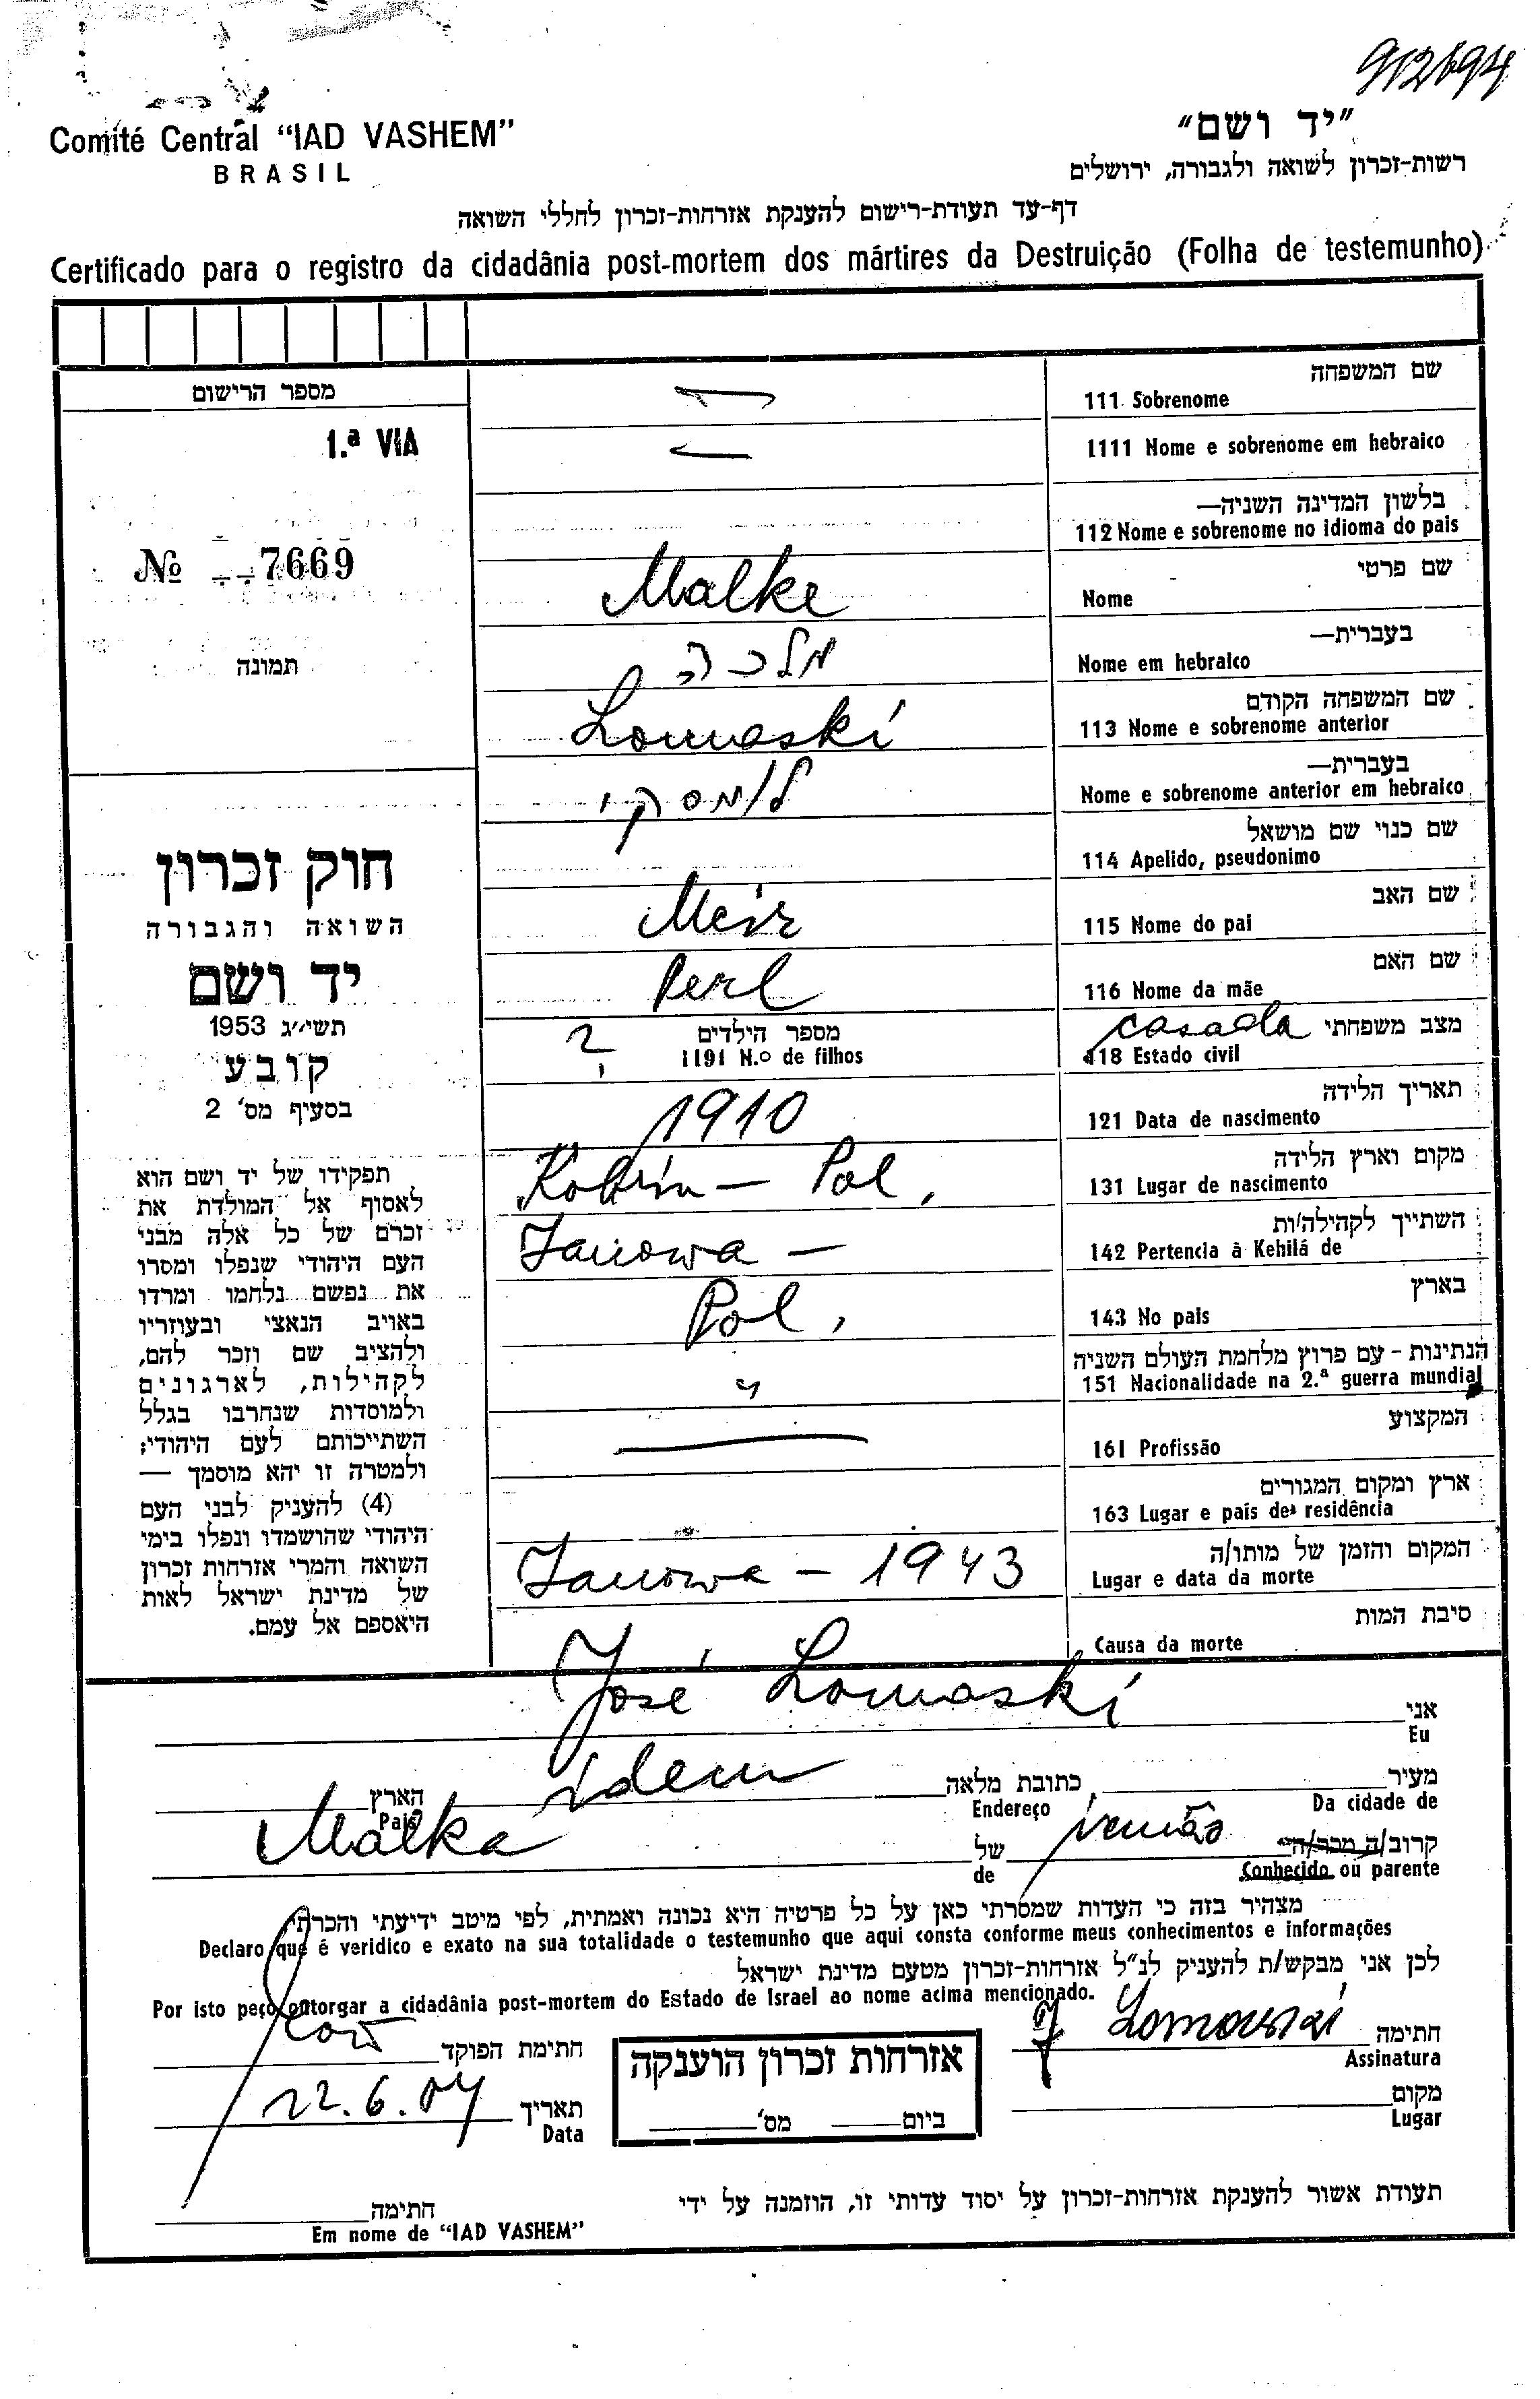 912694
Comité Central "IAD VASHEM"
BRASIL
"יד ושם"
רשות-זכרון לשואה ולגבורה, ירושלים
דף-עד תעודת-רישום להענקת אזרחות-זכרון לחללי השואה
Certificado para o registro da cidadânia post-mortem dos mártires da Destruição (Folha de testemunho)
מספר הרישום
1.ª VIA
№ 7669
תמונה
חוק זכרון
השואה והגבורה
יד ושם
תשי״ג 1953
קובע
בסעיף מס' 2
תפקידו של יד ושם הוא
לאסוף אל המולדת את
זכרם של כל אלה מבני
העם היהודי שנפלו ומסרו
את נפשם נלחמו ומרדו
באויב הנאצי ובעוזריו
ולהציב שם וזכר להם,
לקהילות, לארגונים
ולמוסדות שנחרבו בגלל
השתייכותם לעם היהודי;
ולמטרה זו יהא מוסמך —
(4) להעניק לבני העם
היהודי שהושמדו ונפלו בימי
השואה והמרי אזרחות זכרון
של מדינת ישראל לאות
היאספם אל עמם.
שם המשפחה
111 Sobrenome
1111 Nome e sobrenome em hebraico
בלשון המדינה השניה—
112 Nome e sobrenome no idioma do pais
שם פרטי
Nome Malke
בעברית—
Nome em hebraico מלכה
שם המשפחה הקודם
113 Nome e sobrenome anterior Lomaski
בעברית—
Nome e sobrenome anterior em hebraico לומסקי
שם כנוי שם מושאל
114 Apelido, pseudonimo
שם האב
115 Nome do pai Meir
שם האם
116 Nome da mãe Perl
מצב משפחתי casada
118 Estado civil
מספר הילדים
1191 N.º de filhos 2
תאריך הלידה
121 Data de nascimento 1910
מקום וארץ הלידה
131 Lugar de nascimento Kobrin — Pol.
השתייך לקהילה/ות
142 Pertencia à Kehilá de Janowa —
בארץ
143 No pais Pol.
הנתינות - עם פרוץ מלחמת העולם השניה
151 Nacionalidade na 2.ª guerra mundial "
המקצוע
161 Profissão
ארץ ומקום המגורים
163 Lugar e país de residência
המקום והזמן של מותו/ה
Lugar e data da morte Janowa - 1943
סיבת המות
Causa da morte
אני
Eu José Lomaski
מעיר כתובת מלאה idem הארץ
Da cidade de Endereço Pais
קרוב/ה מכר/ה irmão של Malka
Conhecido ou parente de
מצהיר בזה כי העדות שמסרתי כאן על כל פרטיה היא נכונה ואמתית, לפי מיטב ידיעתי והכרתי
Declaro que é veridico e exato na sua totalidade o testemunho que aqui consta conforme meus conhecimentos e informações
לכן אני מבקש/ת להעניק לנ"ל אזרחות-זכרון מטעם מדינת ישראל
Por isto peço outorgar a cidadânia post-mortem do Estado de Israel ao nome acima mencionado.
חתימה
Assinatura
מקום
Lugar
אזרחות זכרון הוענקה
ביום מס'
חתימת הפוקד
תאריך 22.6.04
Data
תעודת אשור להענקת אזרחות-זכרון על יסוד עדותי זו, הוזמנה על ידי
חתימה
Em nome de "IAD VASHEM"